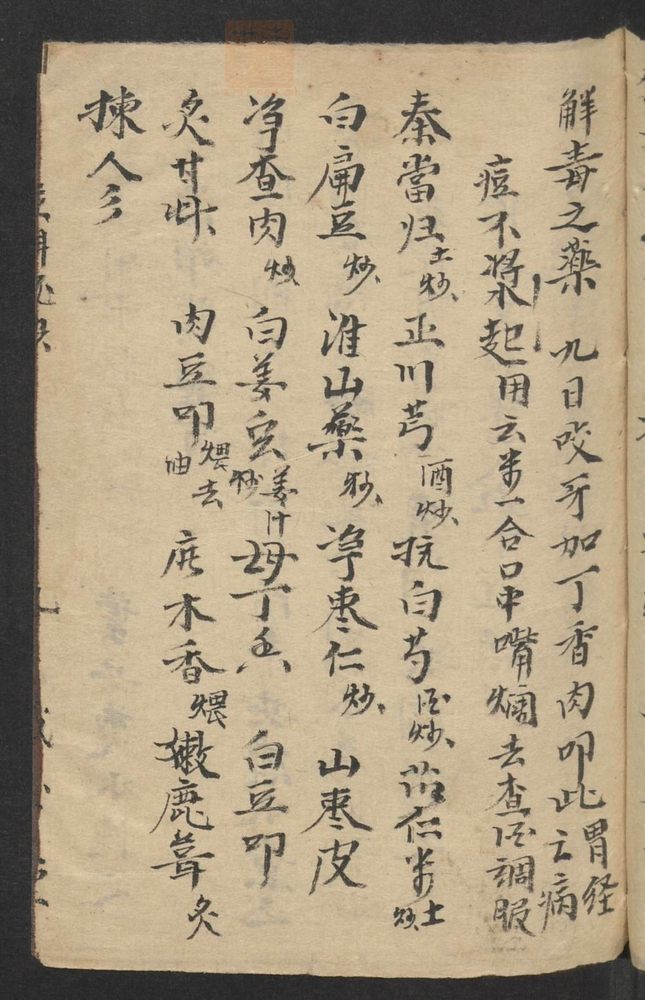 解毒之藥 九日咬牙加丁香肉叩此云胃经病
痘不漿起用云米一合口中嘴爛去查酒調服
秦當归土炒 正川芎酒炒 抗白芍酒炒 苡仁米土炒
白扁豆炒 淮山藥炒 净枣仁炒 山枣皮
净查肉炒 白姜蚕姜汁炒 母丁香 白豆叩
炙甘草 肉豆叩煨去油 広木香煨 嫩鹿茸炙
揀人参